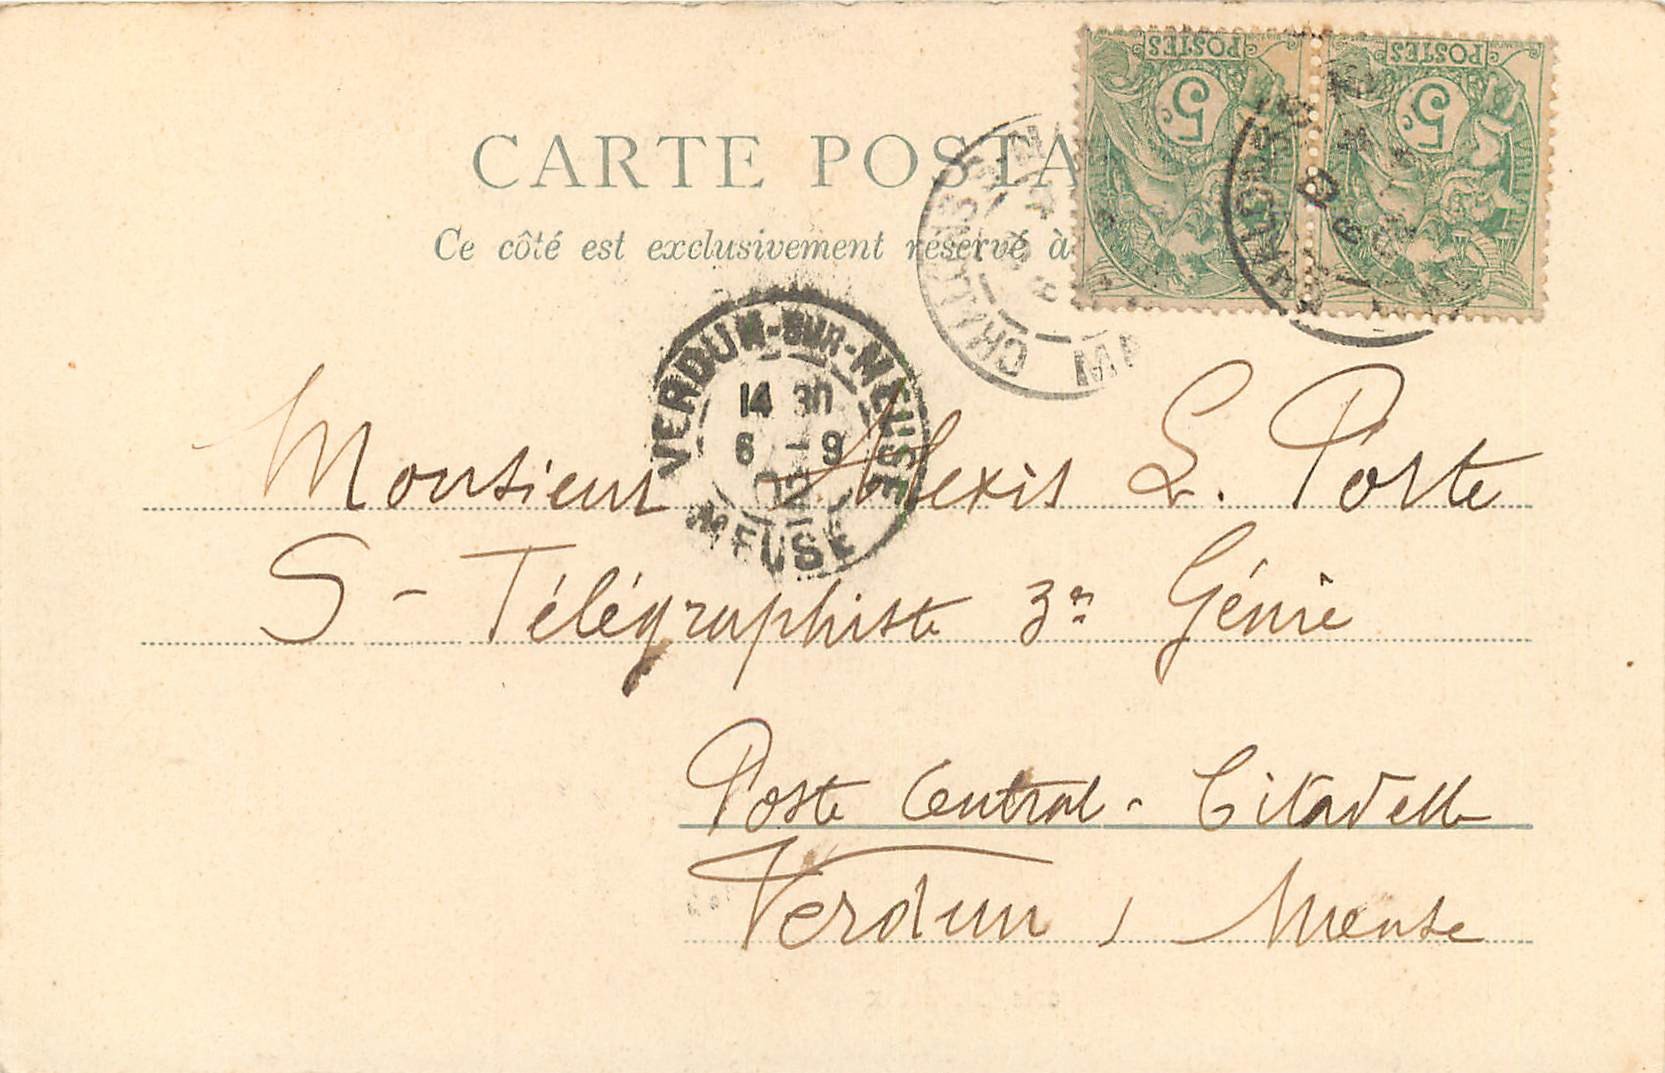 POSTES POSTES
5c 5c
CARTE POSTA
Ce côté est exclusivement réservé à
CHALONS-S-M
VERDUN-SUR-MEUSE
14 30
6 -9
02
MEUSE
Monsieur Alexis L. Porte
S- Télégraphiste 3e Génie
Poste Central - Citadelle
Verdun, Meuse